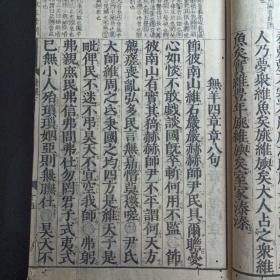 人乃夢眾維魚矣旐維旟矣大人占之眾維
魚矣實維豐年旐維旟矣室家溱溱
無羊四章章八句
節彼南山維石巖巖赫赫師尹民具爾瞻憂
心如惔不敢戲談國旣卒斬何用不監○節
彼南山有實其猗赫赫師尹不平謂何天方
薦瘥喪亂弘多民言無嘉憯莫懲嗟○尹氏
大師維周之氐秉國之均四方是維天子是
毗俾民不迷不弔昊天不宜空我師○弗躬
弗親庶民弗信弗問弗仕勿罔君子式夷式
已無小人殆瑣瑣姻亞則無膴仕○昊天不